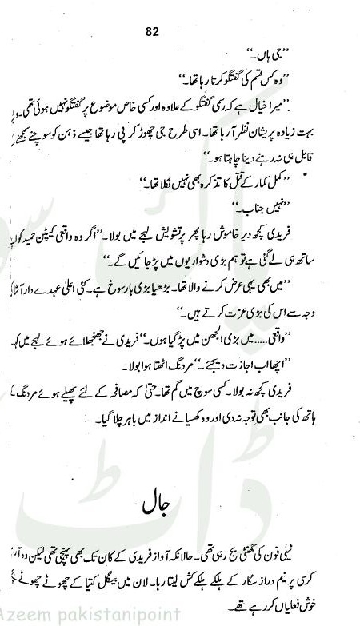 82
”جی ہاں۔“
”وہ کس قسم کی گفتگو کرتا رہا تھا۔“
”میرا خیال ہے کہ رسمی گفتگو کے علاوہ اور کسی خاص موضوع پر گفتگو نہیں ہوئی تھی۔
بہت زیادہ پریشان نظر آ رہا تھا۔ اسی طرح جی چھوڑ کر پی رہا تھا جیسے ذہن کو سوچنے سمجھنے
قابل ہی نہ رہنے دینا چاہتا ہو۔“
”کمل کمار کے قتل کا تذکرہ بھی نہیں نکلا تھا۔“
”نہیں جناب۔“
فریدی کچھ دیر خاموش رہا پھر پرتشویش لہجے میں بولا۔ ”اگر وہ واقعی کیپٹن حمید کو
ساتھ ہی لے گئی ہے تو ہم بڑی دشواریوں میں پڑ جائیں گے۔“
”میں بھی یہی عرض کرنے والا تھا۔ بڑھیا بڑی بارسوخ ہے۔ کئی اعلیٰ عہدے دار
وجہ سے اس کی بڑی عزت کرتے ہیں۔“
”واقعی.....میں بڑی الجھن میں پڑ گیا ہوں۔“ فریدی نے جھنجھلائے ہوئے لہجے میں
”اچھا اب اجازت دیجئے۔“ مردنگ اٹھتا ہوا بولا۔
فریدی کچھ نہ بولا۔ کسی سوچ میں گم تھا۔ حتیٰ کہ مصافحہ کے لئے پھیلے ہوئے مردنگ
ہاتھ کی جانب بھی توجہ نہ دی اور وہ کھسیانے انداز میں باہر چلا گیا۔
جال
ٹیلی فون کی گھنٹی بج رہی تھی۔ حالانکہ آواز فریدی کے کان تک بھی پہنچی تھی لیکن وہ
کرسی پر نیم دراز سگار کے ہلکے ہلکے کش لیتا رہا۔ لان میں بیگل کتیا کے چھوٹے چھوٹے
خوش فعلیاں کر رہے تھے۔
Azeem pakistanipoint